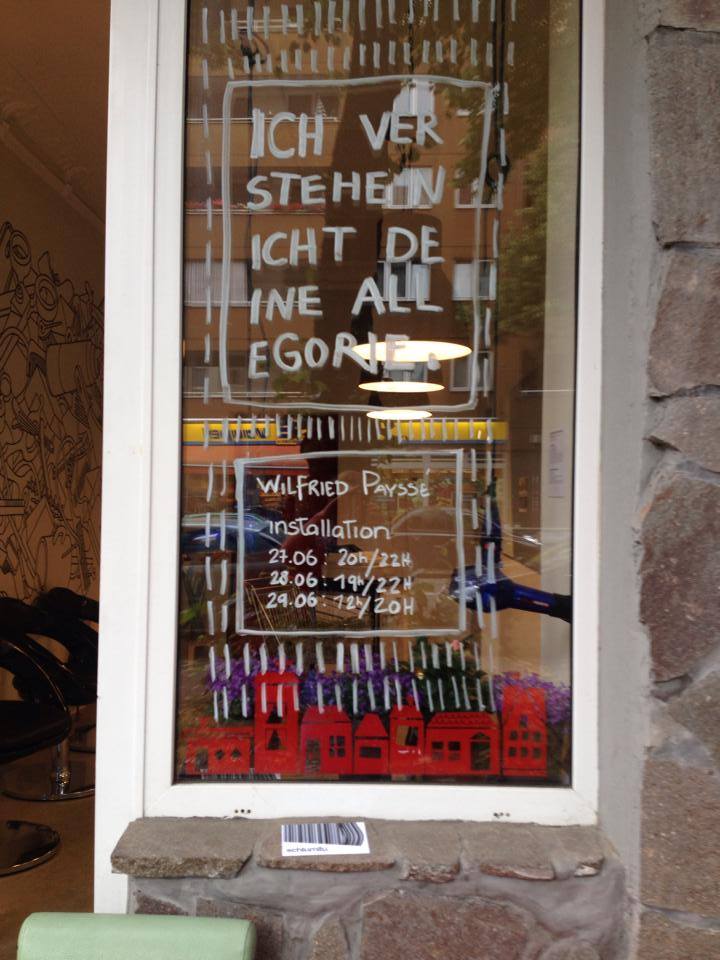 ICH VER
STEHE N
ICHT DE
INE ALL
EGORIE.
WILFRIED PAYSSÉ
installation
27.06 : 20h/22H
28.06 : 19h/22H
29.06 : 12h/20H